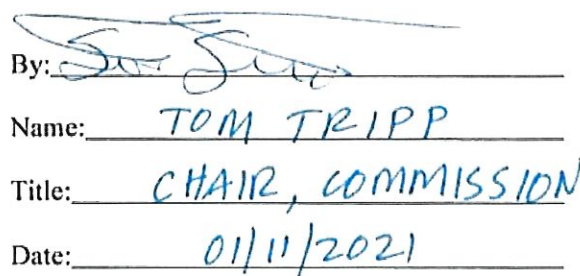 By:
Name: TOM TRIPP
Title: CHAIR, COMMISSION
Date: 01/11/2021